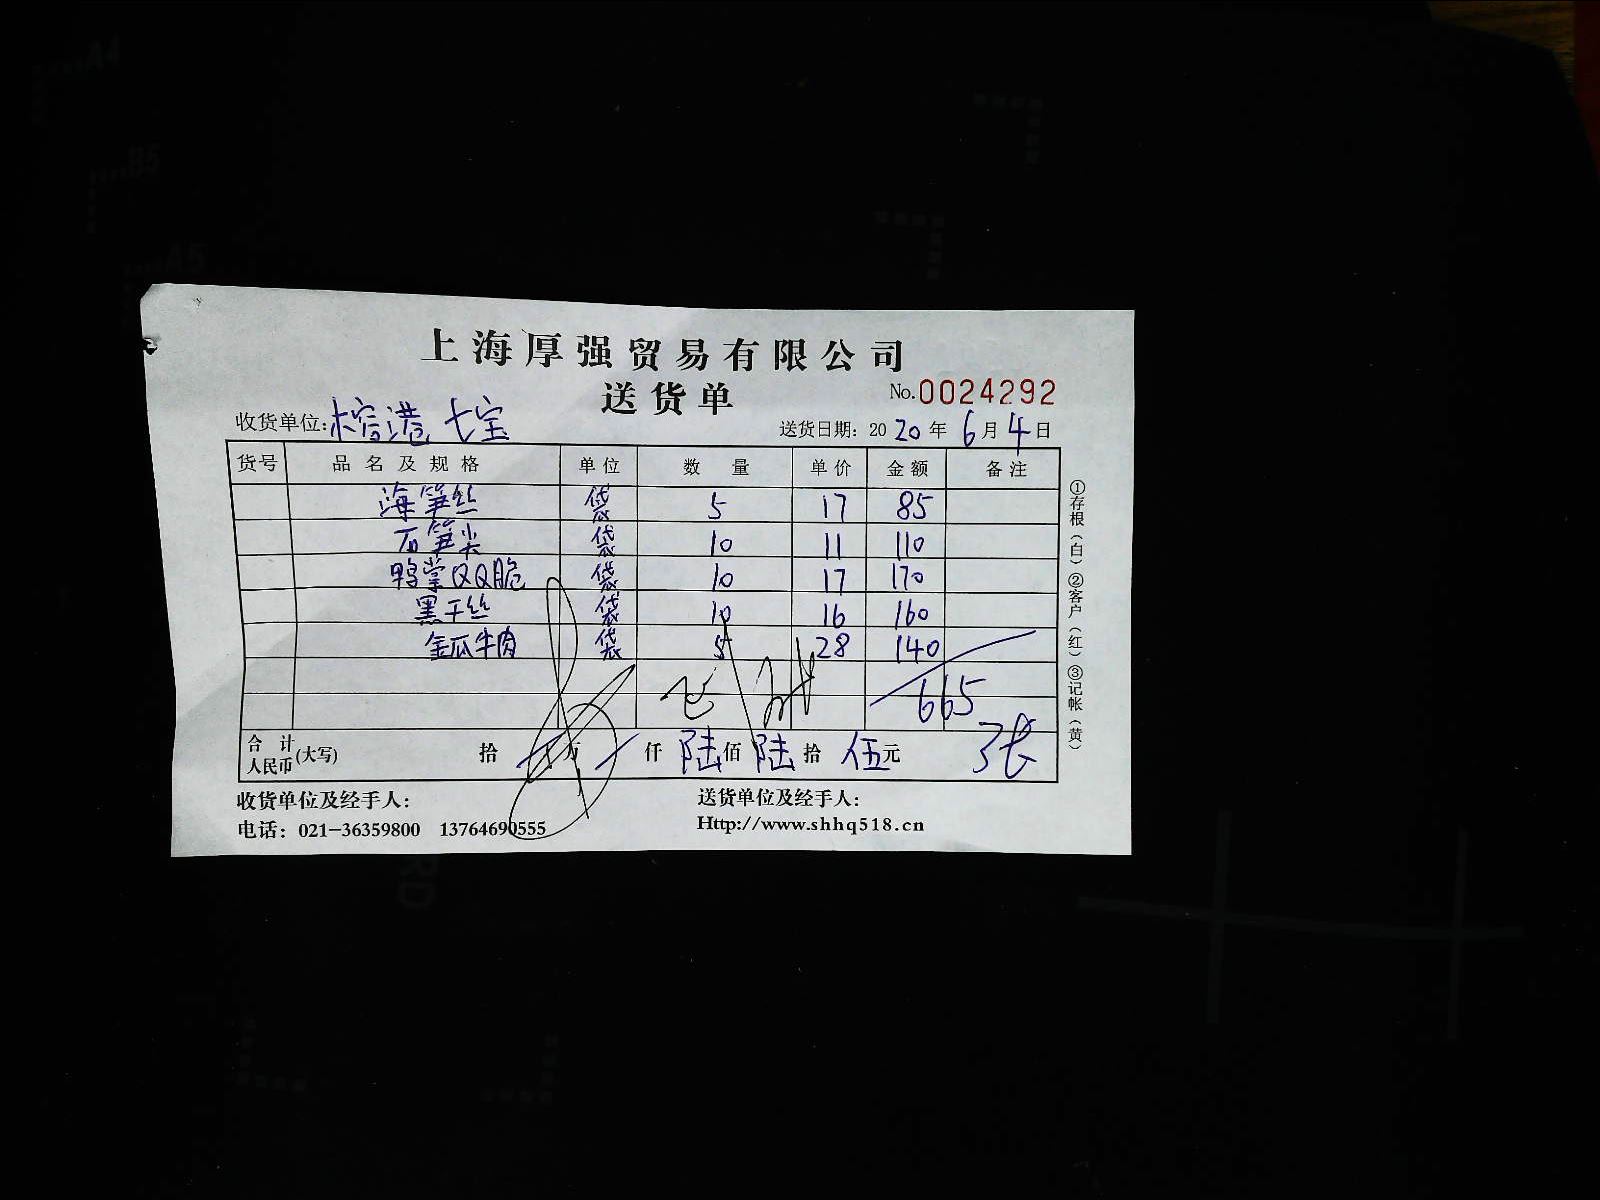 上海厚强贸易有限公司
送货单 No.0024292
收货单位: 榕港 七宝 送货日期: 2020年6月4日
货号 品名及规格 单位 数量 单价 金额 备注
海笋丝 袋 5 17 85
石笋尖 袋 10 11 110
鸭掌QQ脆 袋 10 17 170
黑干丝 袋 10 16 160
金瓜牛肉 袋 5 28 140
665
合计人民币(大写) 拾 万 仟 陆佰陆拾伍元 3张
收货单位及经手人: 送货单位及经手人:
电话: 021-36359800 13764690555 Http://www.shhq518.cn
①存根(白)②客户(红)③记帐(黄)
A4
B5
A5
RD